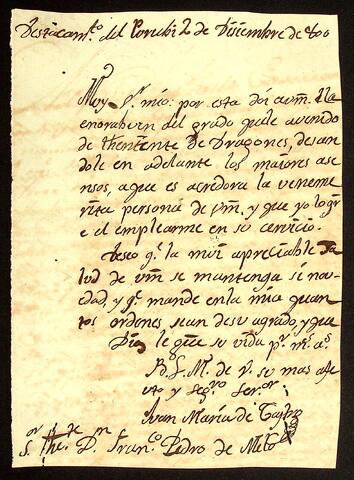 Destacam.to del Porubi 2 de Disiembre de 800
Muy S.r mio: por esta doi avm. lla
enorabuen del grado qule avenido
de thenente de Dragones, desan
dole en adelante los maiores ase
nsos, aque es acredora la veneme
rita persona de vm, y que yo logr
e el emplearme en su cervicio.
Deseo q.e la mui apreciable Sa
lud de vm se mantenga si no
dad, y q.e mande en la mia quan
tos ordenes sean desu agrado, y que
Dios le gue su vida p.r m.s a.s
B. L. M. de v. su mas afe
uto y seg.ro ser.or
Juan María de
S. The. D.n Fran.co Pedro de Melo